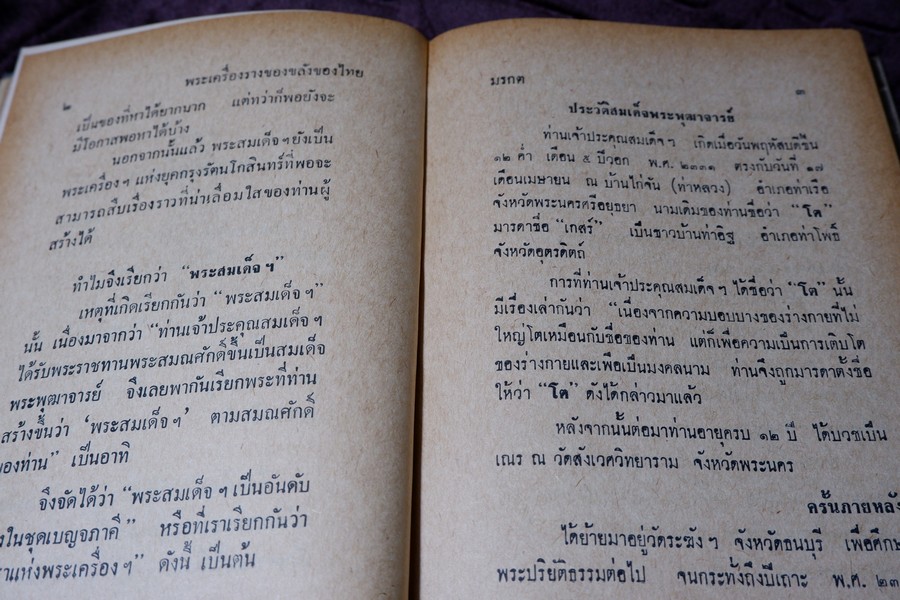 พระเครื่องรางของขลังของไทย
๒
เป็นของที่หาได้ยากมาก แต่ทว่าก็พอยังจะ
มีโอกาสพอหาได้บ้าง
นอกจากนั้นแล้ว พระสมเด็จฯยังเป็น
พระเครื่องฯ แห่งยุคกรุงรัตนโกสินทร์ที่พอจะ
สามารถสืบเรื่องราวที่น่าเลื่อมใสของท่านผู้
สร้างได้
ทำไมจึงเรียกว่า “พระสมเด็จฯ”
เหตุที่เกิดเรียกกันว่า “พระสมเด็จฯ”
นั้น เนื่องมาจากว่า “ท่านเจ้าประคุณสมเด็จฯ
ได้รับพระราชทานพระสมณศักดิ์ขึ้นเป็นสมเด็จ
พระพุฒาจารย์ จึงเลยพากันเรียกพระที่ท่าน
สร้างขึ้นว่า ‘พระสมเด็จฯ’ ตามสมณศักดิ์
ของท่าน” เป็นอาทิ
จึงจัดได้ว่า “พระสมเด็จฯ เป็นอันดับ
ในชุดเบญจภาคี” หรือที่เราเรียกกันว่า
แห่งพระเครื่องฯ” ดังนี้ เป็นต้น
มรกต
๓
ประวัติสมเด็จพระพุฒาจารย์
ท่านเจ้าประคุณสมเด็จฯ เกิดเมื่อวันพฤหัสบดีขึ้น
๑๒ ค่ำ เดือน ๕ ปีวอก พ.ศ. ๒๓๓๑ ตรงกับวันที่ ๑๗
เดือนเมษายน ณ บ้านไก่จ้น (ท่าหลวง) อำเภอท่าเรือ
จังหวัดพระนครศรีอยุธยา นามเดิมของท่านชื่อว่า “โต”
มารดาชื่อ “เกสร์” เป็นชาวบ้านท่าอิฐ อำเภอท่าโพธิ์
จังหวัดอุตรดิตถ์
การที่ท่านเจ้าประคุณสมเด็จฯ ได้ชื่อว่า “โต” นั้น
มีเรื่องเล่ากันว่า “เนื่องจากความบอบบางของร่างกายที่ไม่
ใหญ่โตเหมือนกับชื่อของท่าน แต่ก็เพื่อความเป็นการเติบโต
ของร่างกายและเพื่อเป็นมงคลนาม ท่านจึงถูกมารดาตั้งชื่อ
ให้ว่า “โต” ดังได้กล่าวมาแล้ว
หลังจากนั้นต่อมาท่านอายุครบ ๑๒ ปี ได้บวชเป็น
เณร ณ วัดสังเวศวิทยาราม จังหวัดพระนคร
ครั้นภายหลัง
ได้ย้ายมาอยู่วัดระฆังฯ จังหวัดธนบุรี เพื่อศึกษ
พระปริยัติธรรมต่อไป จนกระทั่งถึงปีเถาะ พ.ศ. ๒๓